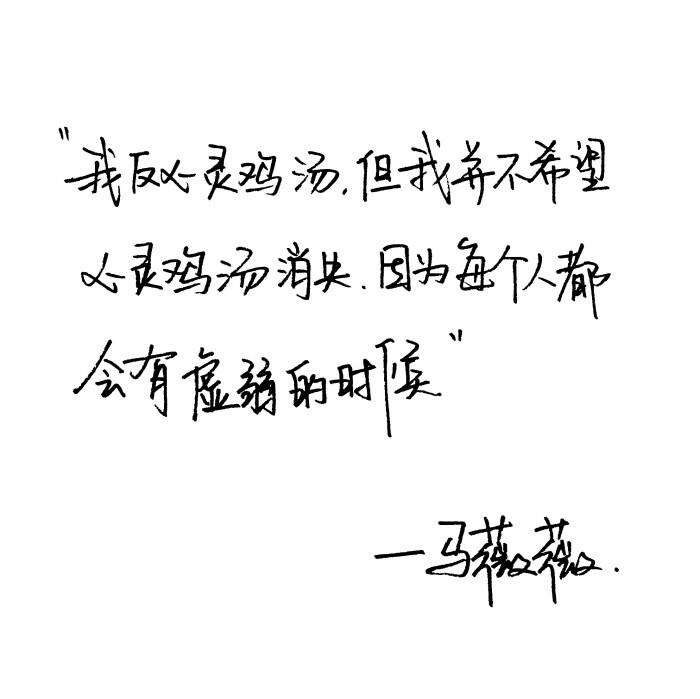 "我反心灵鸡汤，但我并不希望
心灵鸡汤消失，因为每个人都
会有虚弱的时候"
—马薇薇.